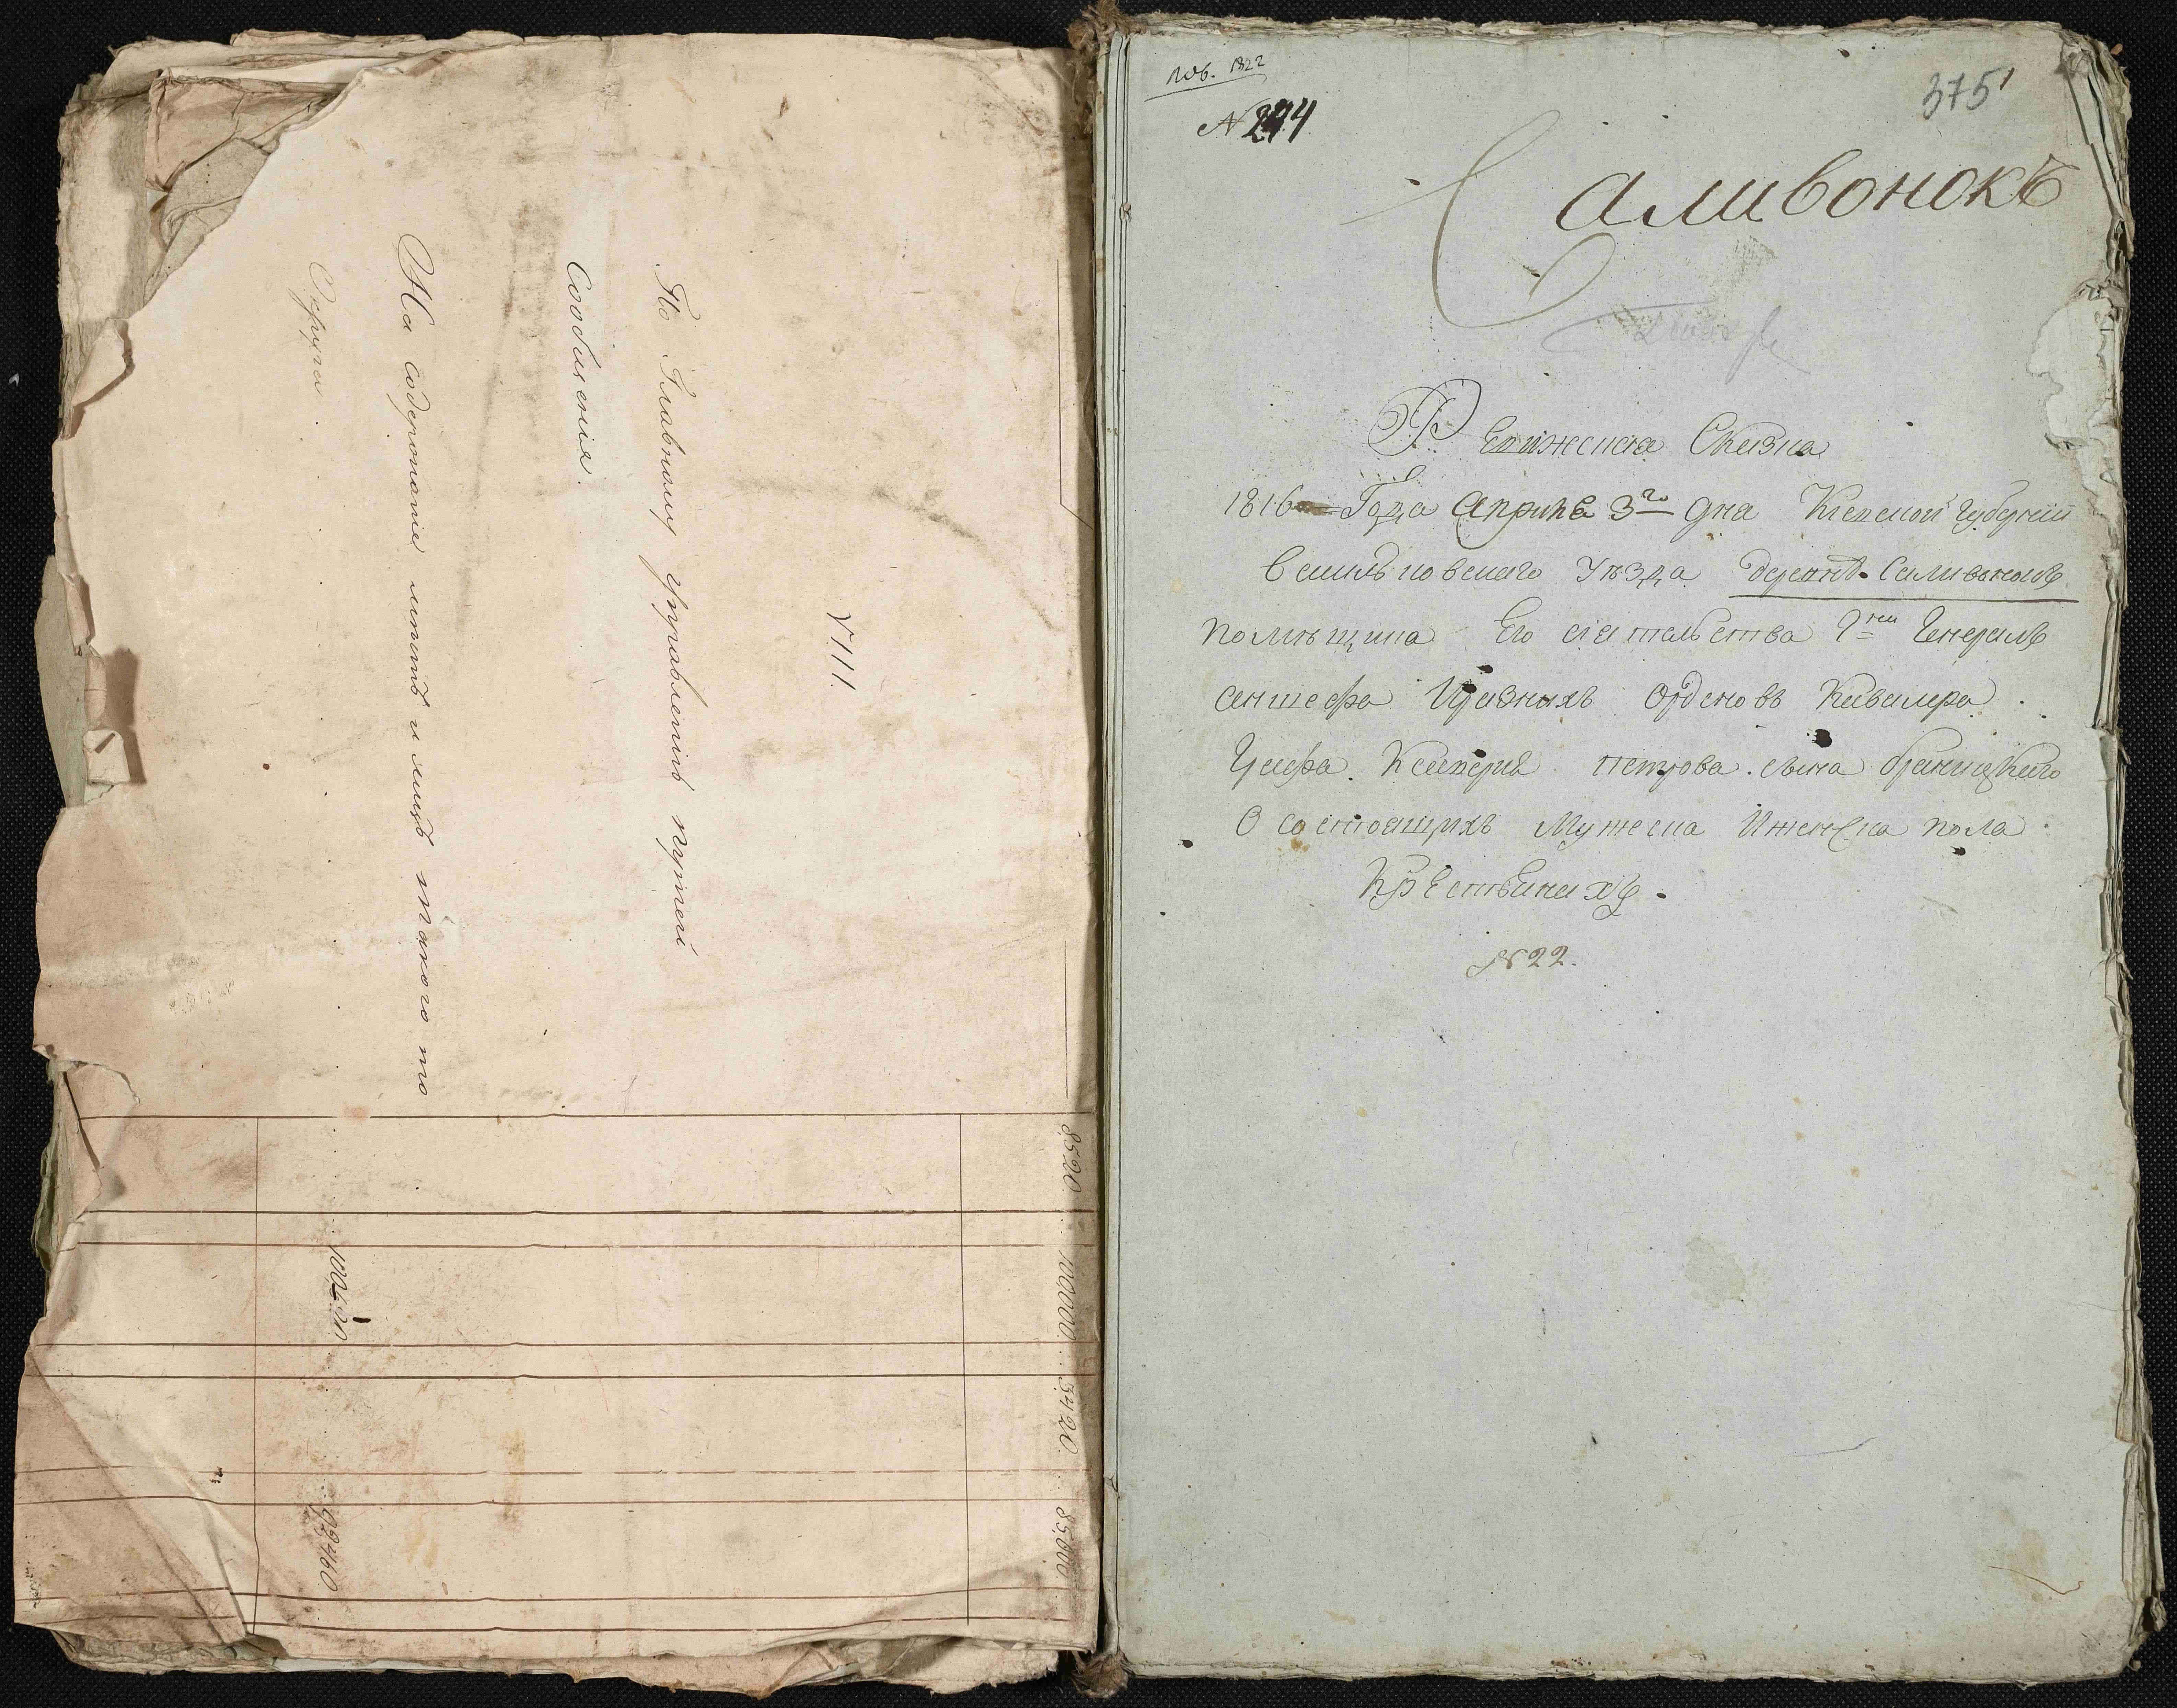 VIII.
По Главному управленію путей
Сообщенія.
На содержаніе мѣстъ и лицъ такого то
Округа
8,520 100,000 3,420 85,600
100,520 92,460
1822
№ 244
375
Саливонокъ
Ревижская Сказка
1816 Года Апрѣля 3го дня Кіевской Губерніи
Васильковскаго Уѣзда деревнѣ Саливонокъ
помѣщика Его сіятельства Гна Генералъ
аншефа Иразныхъ Орденовъ Кавалера
Графа Ксаверія петрова сына браницкаго
О состоящихъ Мужеска Иженска пола
Крестьянахъ.
№ 22.